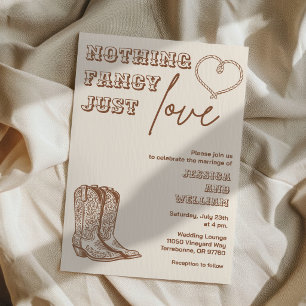 NOTHING
FANCY
JUST
love
Please join us
to celebrate the marriage of
JESSICA
AND
WELLIAM
Saturday, July 23th
at 4 pm.
Wedding Lounge
11050 Vineyard Way
Terrebonne, OR 97760
Reception to follow